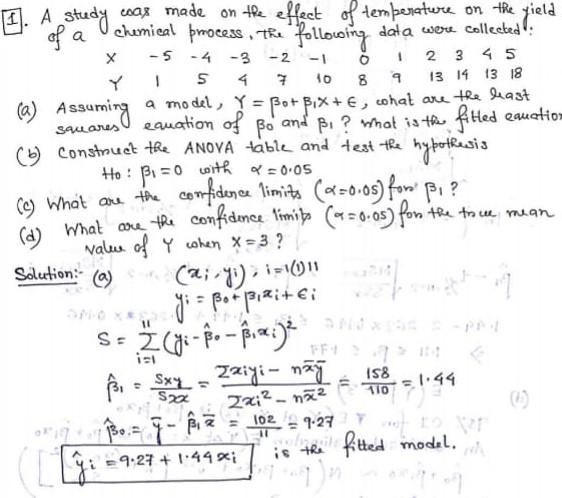 1. A study was made on the effect of temperature on the yield
of a chemical process, the following data were collected:
X -5 -4 -3 -2 -1 0 1 2 3 4 5
Y 1 5 4 7 10 8 9 13 14 13 18
(a) Assuming a model, Y = β₀ + β₁X + ε, what are the least
squares equation of β₀ and β₁? What is the fitted equation
(b) Construct the ANOVA table and test the hypothesis
H₀ : β₁ = 0 with α = 0.05
(c) What are the confidence limits (α = 0.05) for β₁?
(d) What are the confidence limits (α = 0.05) for the true mean
value of Y when X = 3?
Solution:- (a) (xᵢ, yᵢ), i = 1(1)11
yᵢ = β₀ + β₁xᵢ + εᵢ
S = Σᵢ₌₁¹¹ (yᵢ - β̂₀ - β̂₁xᵢ)²
β̂₁ = Sxy/Sxx = (Σxᵢyᵢ - nx̄ȳ)/(Σxᵢ² - nx̄²) = 158/110 = 1.44
β̂₀ = ȳ - β̂₁x̄ = 102/11 = 9.27
ŷᵢ = 9.27 + 1.44xᵢ is the fitted model.